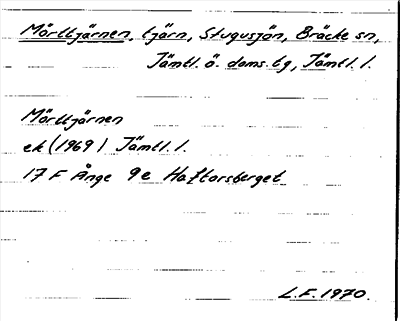 Mörttjärnen, tjärn, Stugusjön, Bräcke sn,
Jämtl. ö. doms. tg, Jämtl. l.
Mörttjärnen
ek (1969) Jämtl. l.
17 F Ånge 9e Haftorsberget
L.F. 1970.